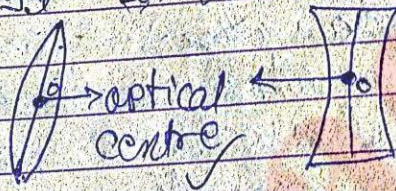 O → optical ← O
centre